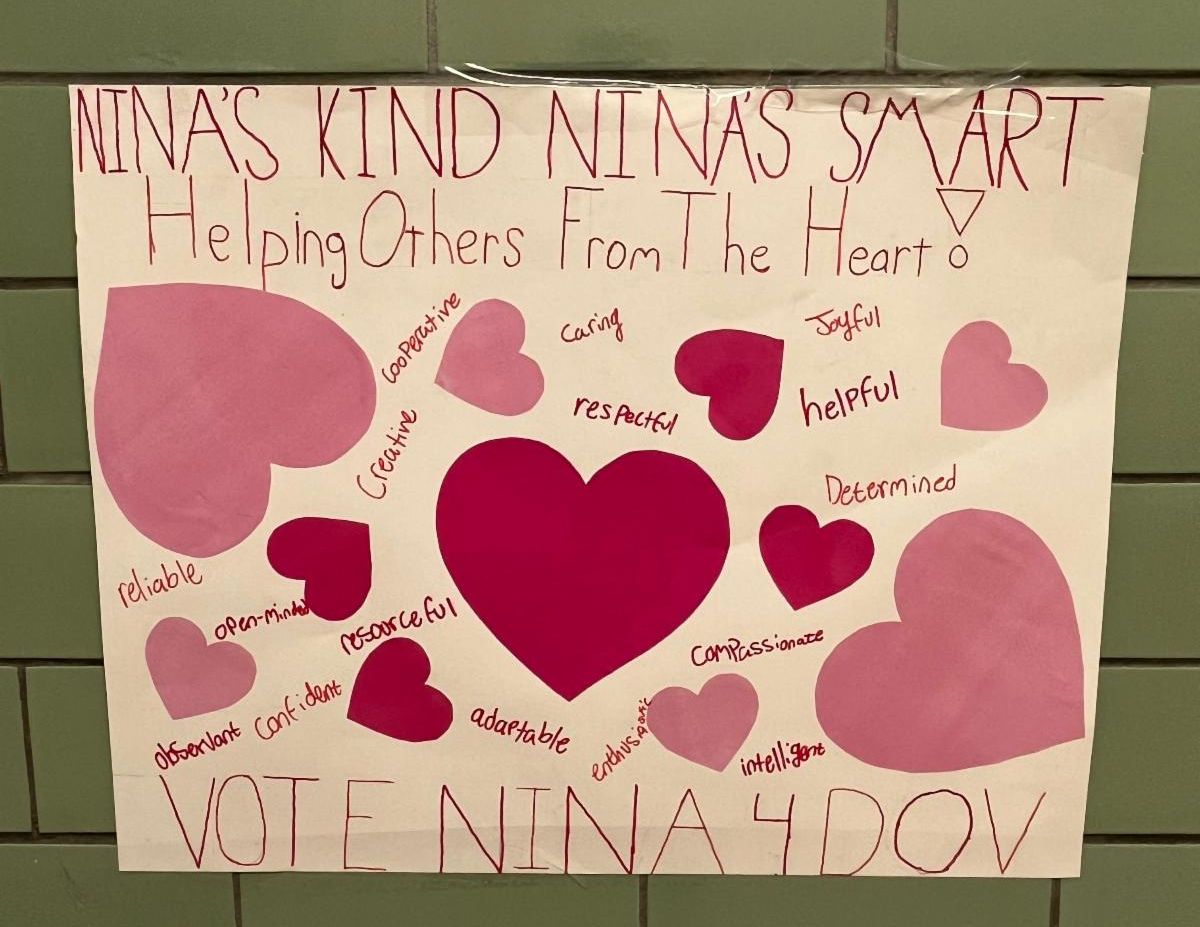 NINA'S KIND NINA'S SMART
Helping Others From The Heart!
cooperative
caring
Joyful
Creative
respectful
helpful
Determined
reliable
open-minded
resourceful
compassionate
observant
confident
adaptable
enthusiastic
intelligent
VOTE NINA 4 DOV